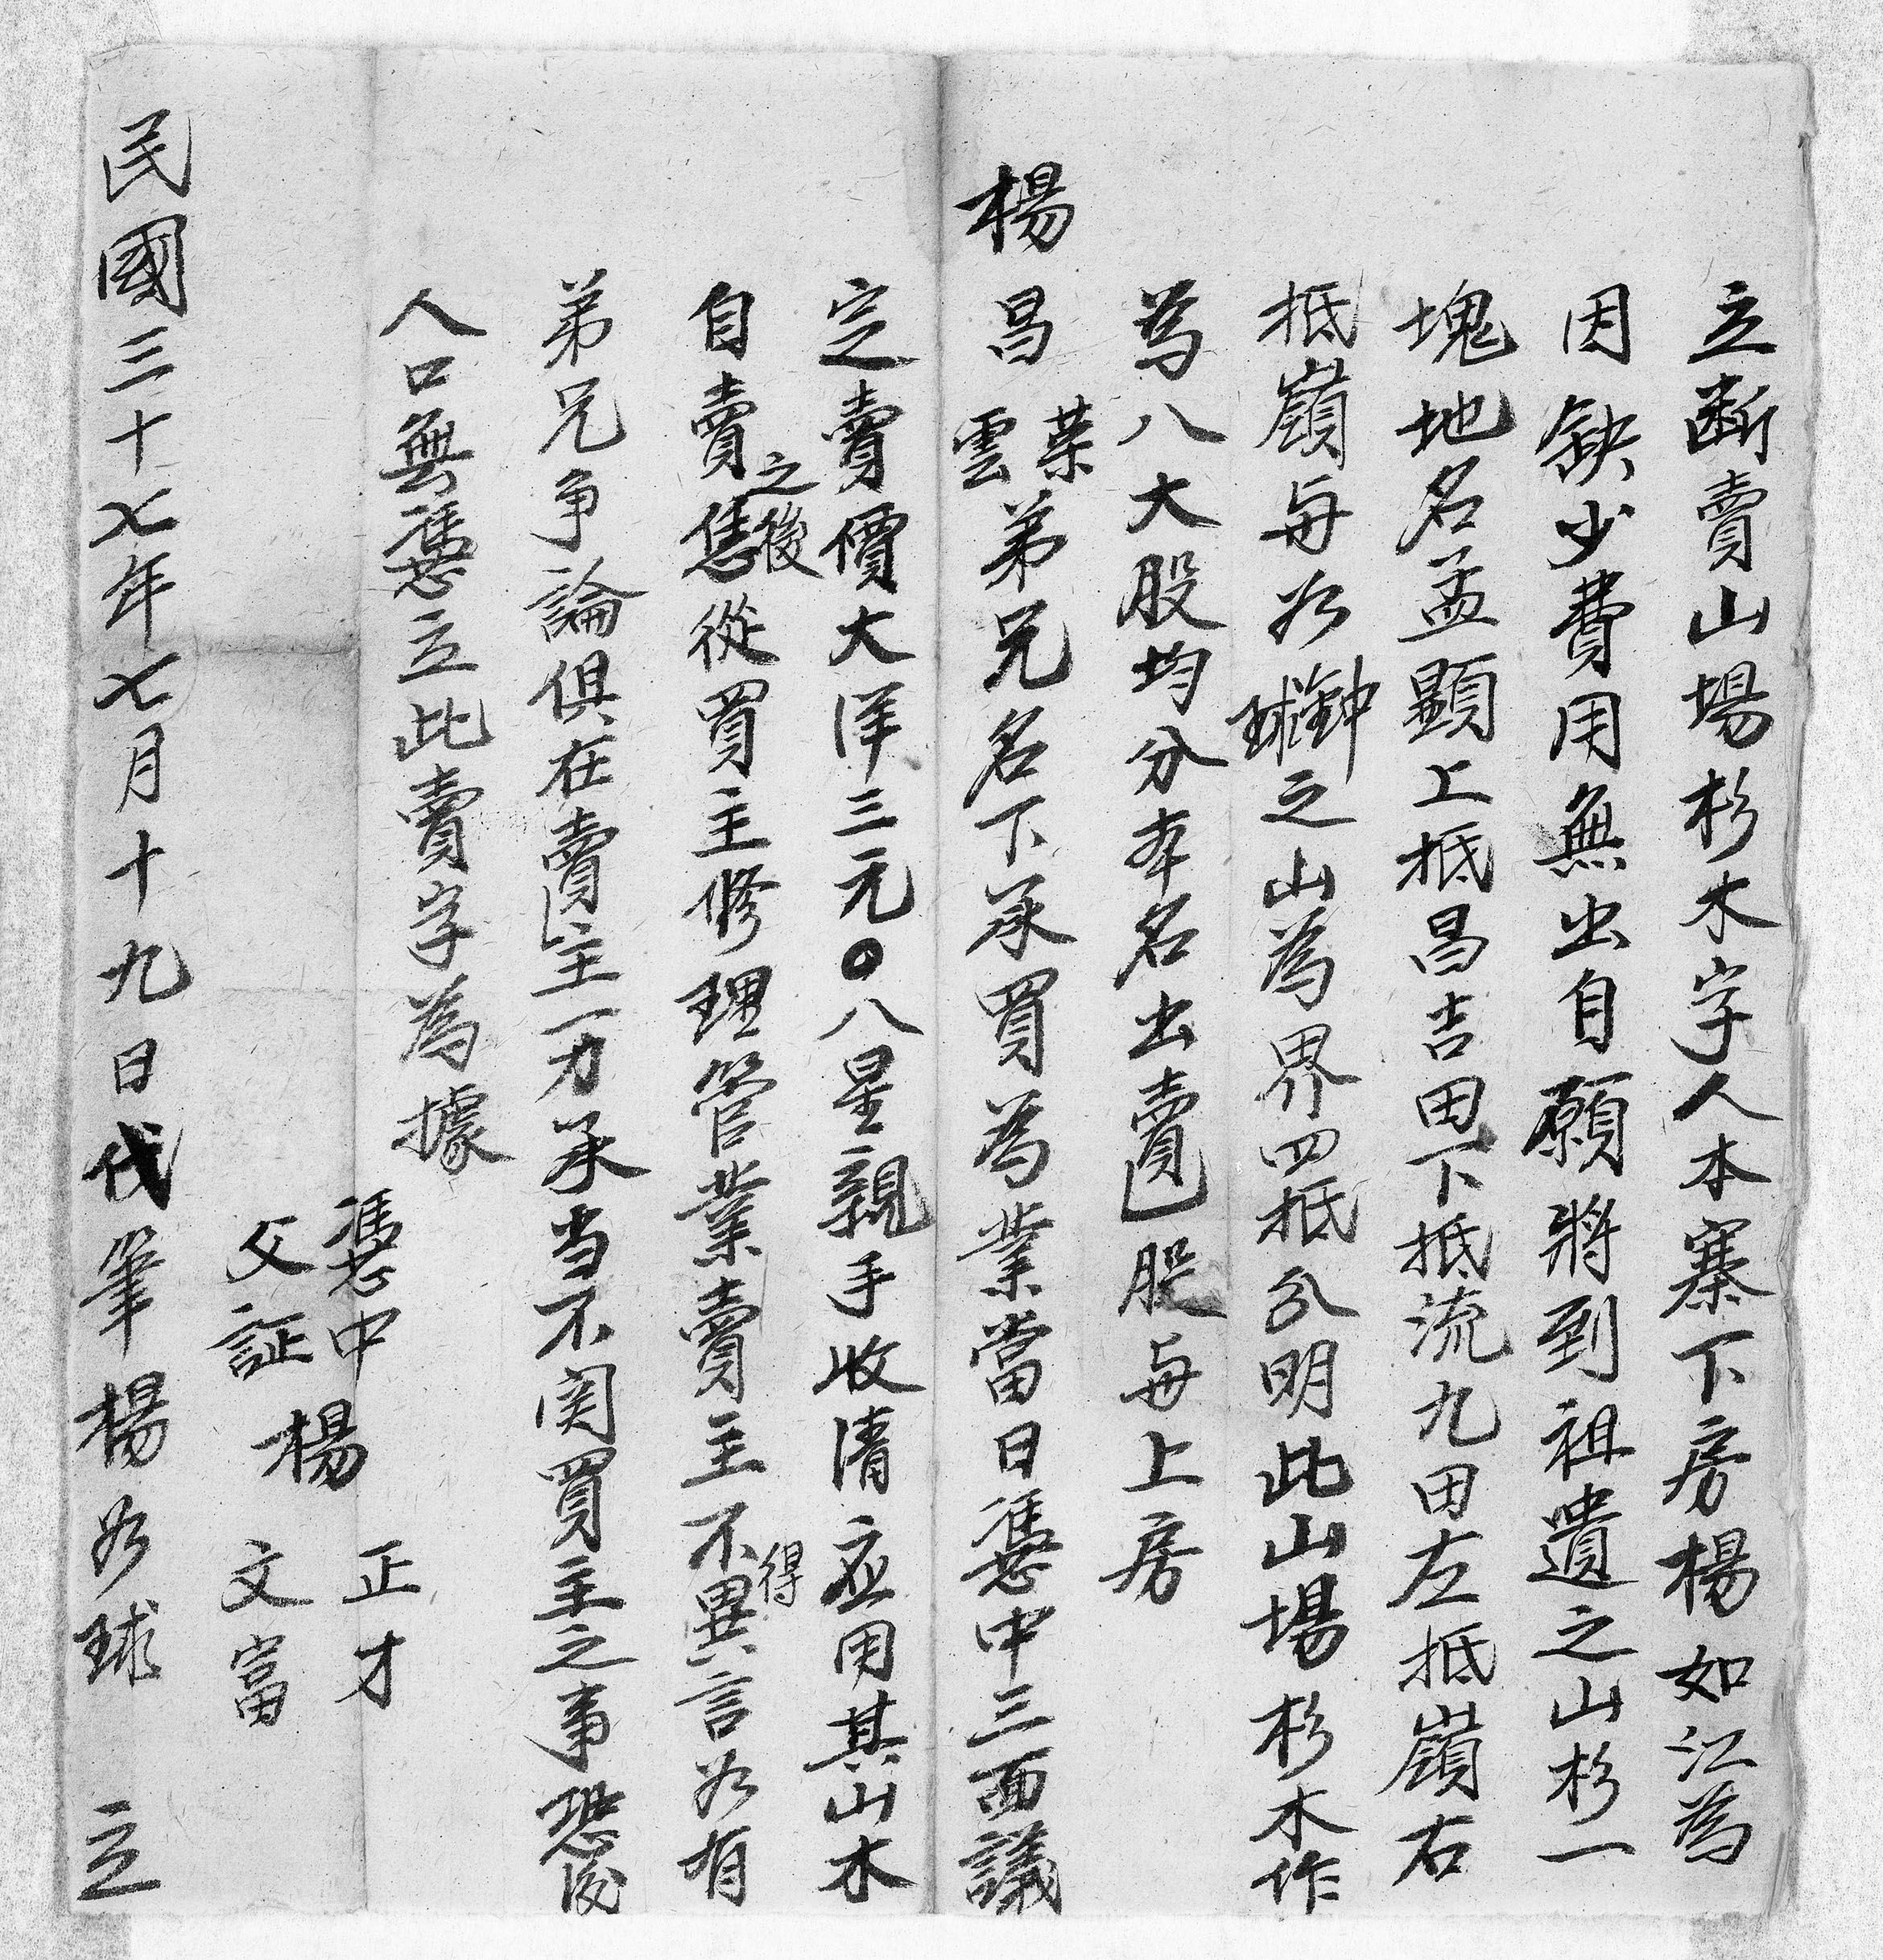 立断賣山場杉木字人本寨下房楊如江為
因缺少費用無出自願將到祖遺之山杉一
塊地名孟顯上抵昌吉田下抵流九田左抵嶺右
抵嶺每为鉀球之山為界四抵分明此山場杉木作
為八大股均分本名出賣一股每上房
楊昌荣雲弟兄名下承買為業當日憑中三面議
定賣價大洋三元〇八星親手收清应用其山木
自賣之後恁從買主修理管業賣主不得異言为有
弟兄争論俱在賣主一力承当不関買主之事恐後
人口無憑立此賣字為據
憑中楊正才
父証文富
民國三十七年七月十九日代筆楊为球 立